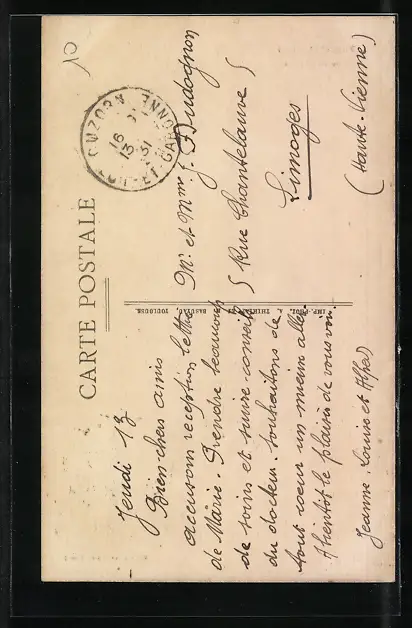 CARTE POSTALE
Jeudi 13
Bien chers amis
accusons reception lettre
de Marie. Prendre beaucoup
de soins et suivre conseils
du docteur souhaitons de
tout coeur un mieux aller
A bientôt le plaisir de vous voir
Jeanne Louise et Alfred
IMP.-PHOT. A. THIRIAT ET BASUYAU, TOULOUSE
CUZORN
16
13 - 31
LOT-ET-GARONNE
Mr et Mme J. Dudognon
5 Rue Chantelauve 5
Limoges
(Haute-Vienne)
10